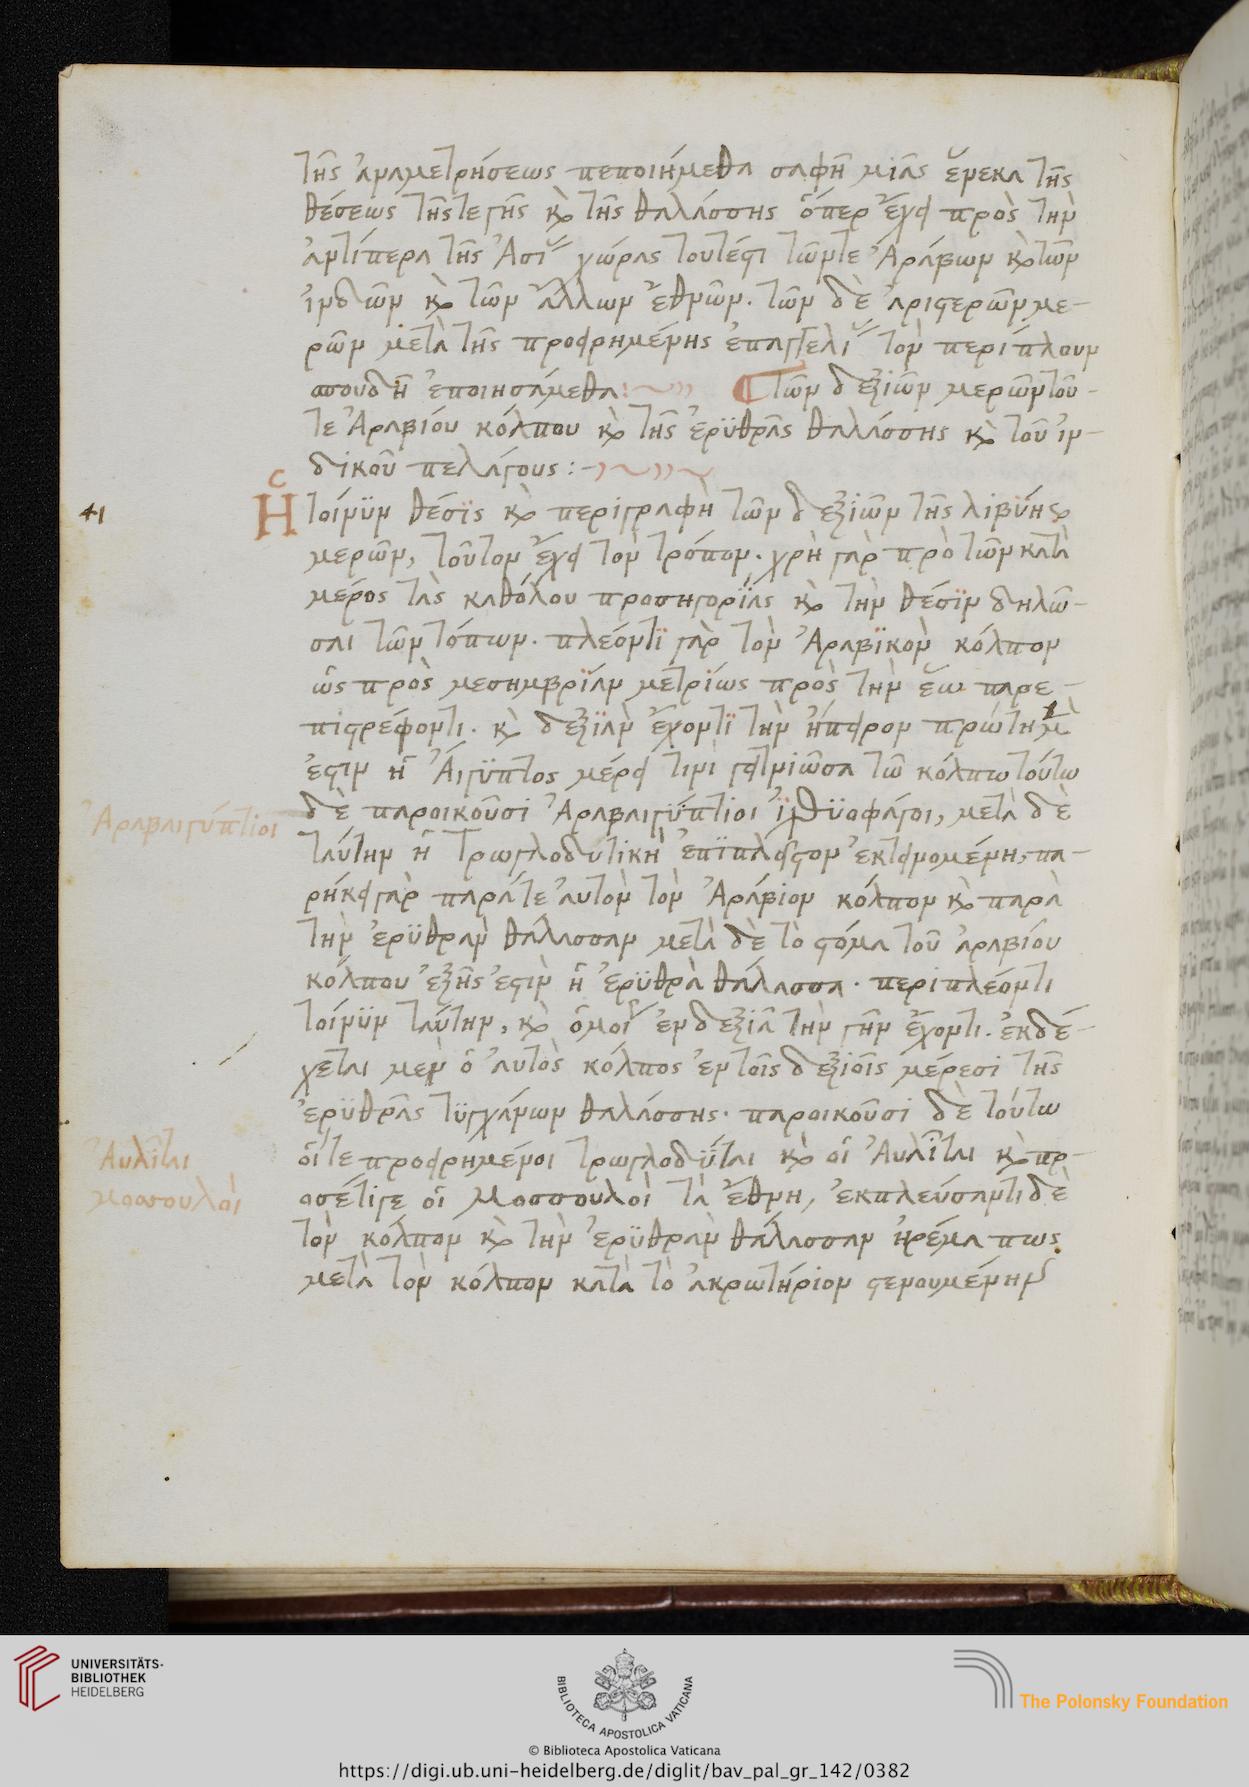 τῆς ἀναμετρήσεως πεποιήμεθα σαφῆ μιᾶς ἕνεκα τῆς
θέσεως τῆς τε γῆς καὶ τῆς θαλάσσης ὅπερ ἔχει πρὸς τὴν
ἀντίπερα τῆς Ἀσίας χώρας τουτέστι τῶν τε Ἀράβων καὶ τῶν
ἰνδῶν καὶ τῶν ἄλλων ἐθνῶν. τῶν δὲ ἀριστερῶν με-
ρῶν μετὰ τῆς προειρημένης ἐπαγγελίας τὸν περίπλουν
σπουδῇ ἐποιησάμεθα :~
Τῶν δεξιῶν μερῶν τοῦ-
τε Ἀραβίου κόλπου καὶ τῆς ἐρϋθρᾶς θαλάσσης καὶ τοῦ ἰν-
δικοῦ πελάγους :-
41
Ἡ τοίνϋν θέσϊς καὶ περιγραφὴ τῶν δεξιῶν τῆς λιβύης
μερῶν, τοῦτον ἔχει τὸν τρόπον. χρὴ γὰρ πρὸ τῶν κατὰ
μέρος τὰς καθόλου προσηγορΐας καὶ τὴν θέσϊν δηλῶ-
σαι τῶν τόπων. πλέοντϊ γὰρ τὸν Ἀραβϊκὸν κόλπον
ὡς πρὸς μεσημβρΐαν μετρίως πρὸς τὴν ἕω παρε-
πιστρέφοντι. καὶ δεξϊὰν ἔχοντϊ τὴν ἤπειρον πρώτη μὲν
ἐστιν ἡ Ἄιγϋπτος μέρει τινὶ γειτνιῶσα τῶ κόλπω τούτω
Ἀραβαιγύπτιοι
δὲ παροικοῦσι Ἀραβαιγΰπτιοι ἰχθϋοφάγοι, μετὰ δὲ
ταύτην ἡ Τρωγλοδυτικὴ ἐπϊπλεῖστον ἐκτεινομένη, πα-
ρήκει γὰρ παρά τε ἀυτὸν τὸν Ἀράβιον κόλπον καὶ παρὰ
τὴν ἐρϋθρὰν θάλασσαν μετὰ δὲ τὸ στόμα τοῦ ἀραβίου
κόλπου ἑξῆς ἐστιν ἡ ἐρϋθρὰ θάλασσα. περιπλέοντι
τοίνϋν ταύτην, καὶ ὁμοίως ἐν δεξιᾶ τὴν γῆν ἔχοντι. ἐκδέ-
χεται μὲν ὁ ἀυτὸς κόλπος ἐν τοῖς δεξιοῖς μέρεσι τῆς
ἐρϋθρᾶς τϋγχάνων θαλάσσης. παροικοῦσι δὲ τούτω
Ἀυλῖται
οἵ τε προειρημένοι τρωγλοδΰται καὶ οἱ Ἀυλῖται καὶ πρ-
Μοσσουλοὶ
οσέτιγε οἱ Μοσσουλοὶ τὰ ἔθνη, ἐκπλεύσαντι δὲ
τὸν κόλπον καὶ τὴν ἐρϋθρὰν θάλασσαν ἠρέμα πως
μετὰ τὸν κόλπον κατὰ τὸ ἀκρωτήριον στενουμένην
UNIVERSITÄTS-
BIBLIOTHEK
HEIDELBERG
BIBLIOTECA APOSTOLICA VATICANA
The Polonsky Foundation
© Biblioteca Apostolica Vaticana
https://digi.ub.uni-heidelberg.de/diglit/bav_pal_gr_142/0382